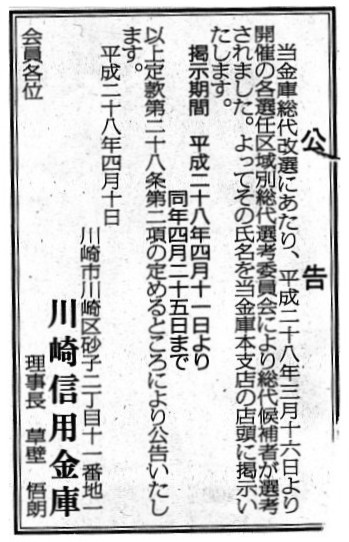 公告
当金庫総代改選にあたり、平成二十八年三月十六日より
開催の各選任区域別総代選考委員会により総代候補者が選考
されました。よってその氏名を当金庫本支店の店頭に掲示い
たします。
掲示期間 平成二十八年四月十一日より
同年四月二十五日まで
以上定款第二十八条第二項の定めるところにより公告いたし
ます。
平成二十八年四月十日
川崎市川崎区砂子二丁目十一番地一
川崎信用金庫
理事長 草壁 悟朗
会員各位